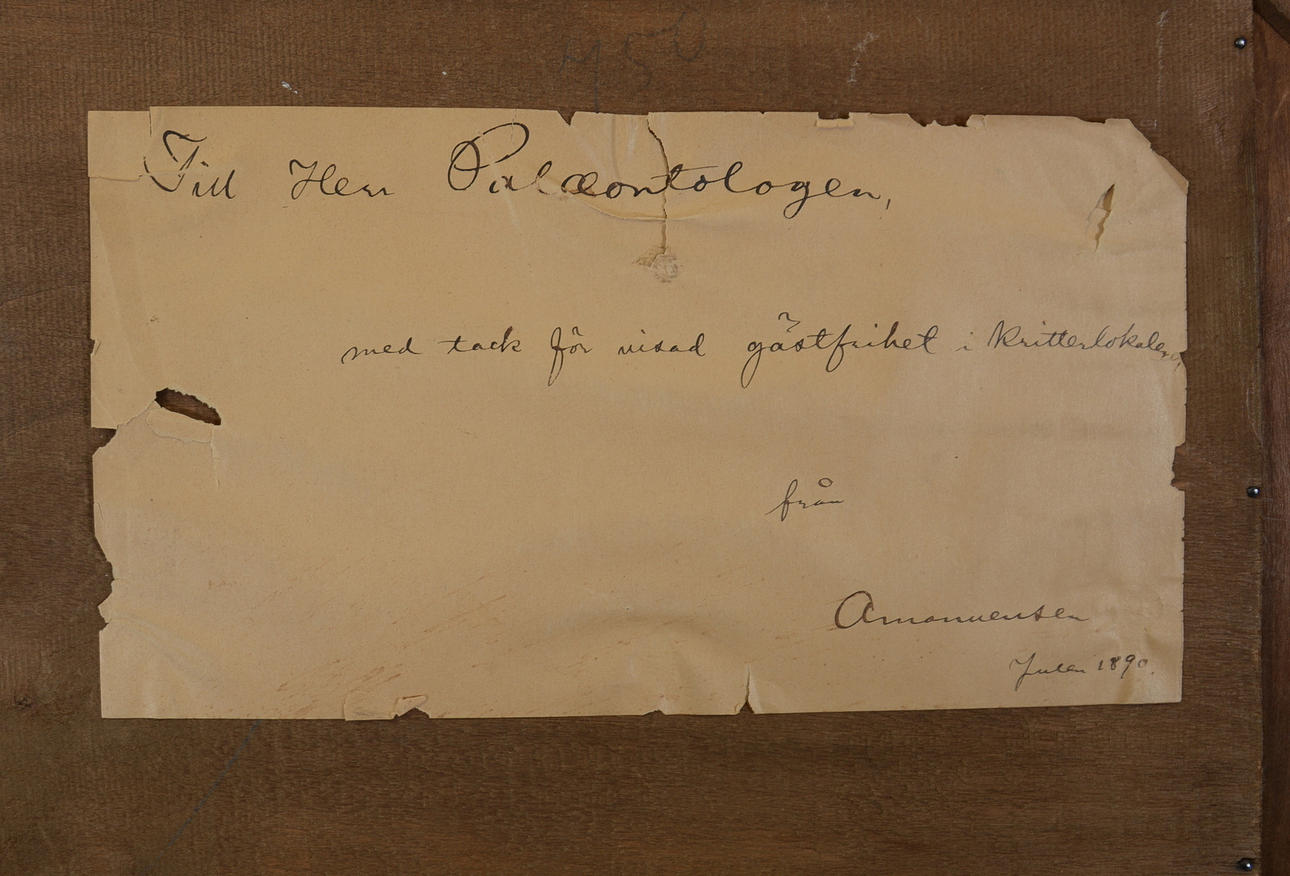 Till Herr Palæontologen,
med tack för visad gästfrihet i Kritterlokalen,
från
Amanuensen
Julen 1890.